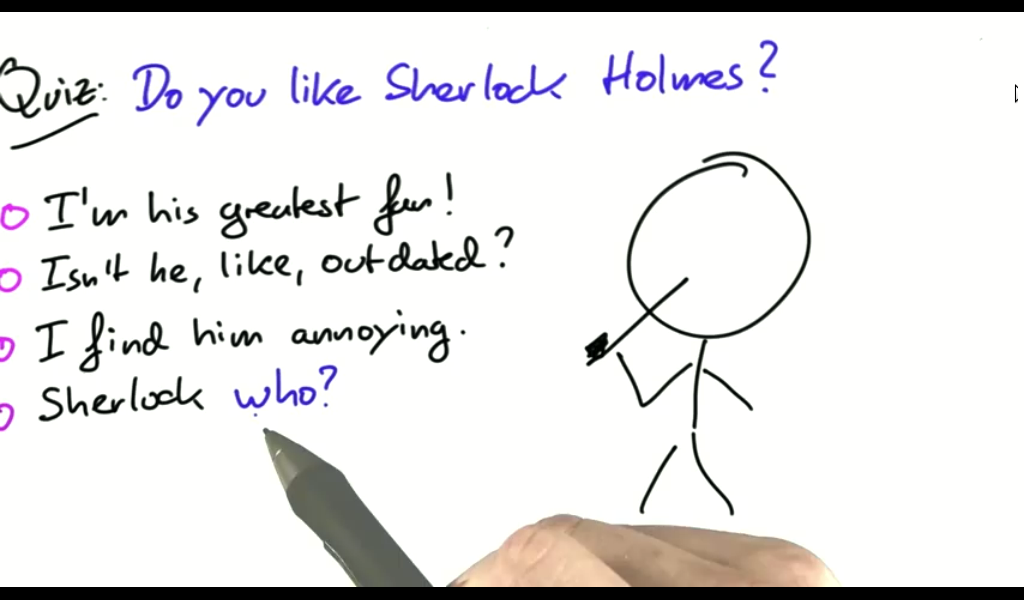 Quiz: Do you like Sherlock Holmes?
I'm his greatest fan!
Isn't he, like, outdated?
I find him annoying.
Sherlock who?